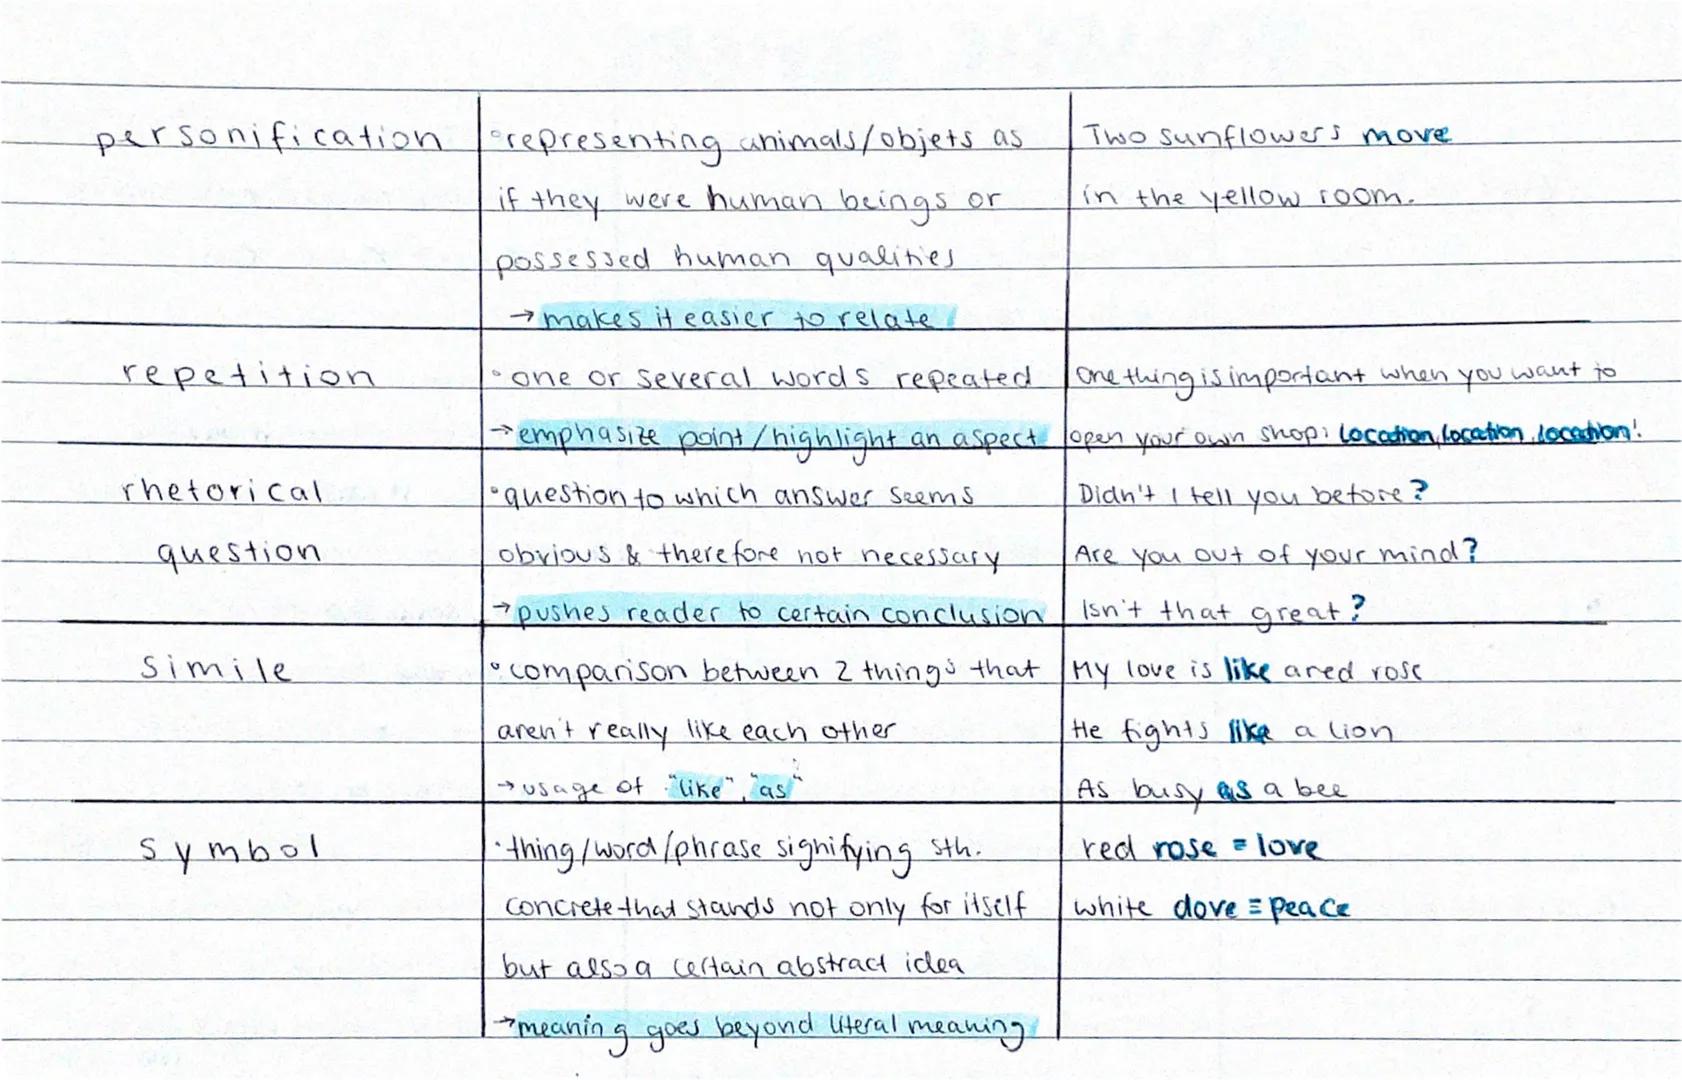 personification
°representing animals/objets as
if they were human beings or
possessed human qualities
→ makes it easier to relate
Two sunflowers move
in the yellow room.
repetition
°one or several words repeated
→ emphasize point/highlight an aspect
One thing is important when you want to
open your own shop: location, location, location!
rhetorical
question
°question to which answer seems
obvious & therefore not necessary
→ pushes reader to certain conclusion
Didn't I tell you before?
Are you out of your mind?
Isn't that great?
simile
°comparison between 2 things that
aren't really like each other
→ usage of "like", "as"
My love is like a red rose
He fights like a lion
As busy as a bee
symbol
°thing/word/phrase signifying sth.
concrete that stands not only for itself
but also a certain abstract idea
→ meaning goes beyond literal meaning
red rose = love
white dove = peace